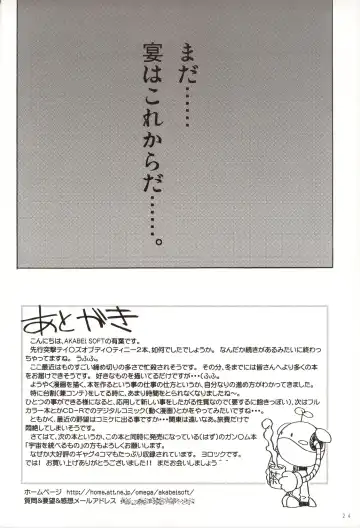 まだ……
宴はこれからだ……。
あとがき
こんにちは、AKABEI SOFTの有葉です。
先行突撃テイ○ズオブディ○ティニー2本、如何でしたでしょうか。なんだか続きがあるみたいに終わっ
ちゃってますね。うふふ。
ここ最近はものすごい締め切りの多さで忙殺されそうです。その分、冬までには皆さんへより多くの本
をお届けできそうです。好きなものを描いてるだけですが・・・(ふふ。
ようやく漫画を描く、本を作るという事の仕事の仕方というか、自分なりの進め方がわかってきました。
特にコマ割(兼コンテ)をしてる時に、あまり時間をとられなくなりましたね～。
ひとつの事ができる様になると、応用して新しい事をしたがる性質なので(要するに飽きっぽい)、次はフル
カラー本とかCD-Rでのデジタルコミック(動く漫画)とかをやってみたいですね・・・。
ともかく、最近の野望はコミケに出る事ですが・・・関東は遠いなあ。旅費だけで
悶絶してしまいそうです。
さてはて、次の本というか、この本と同時に発売になっている(はず)のガン○ム本
「宇宙を統べるもの」の方もよろしくお願いします。
なぜか大好評のギャグ4コマもたっぷり収録されています。ヨロックです。
では！お買い上げありがとうございました!!またお会いしましょう
ホームページ http://home.att.ne.jp/omega/akabeisoft/
質問&要望&感想メールアドレス
24